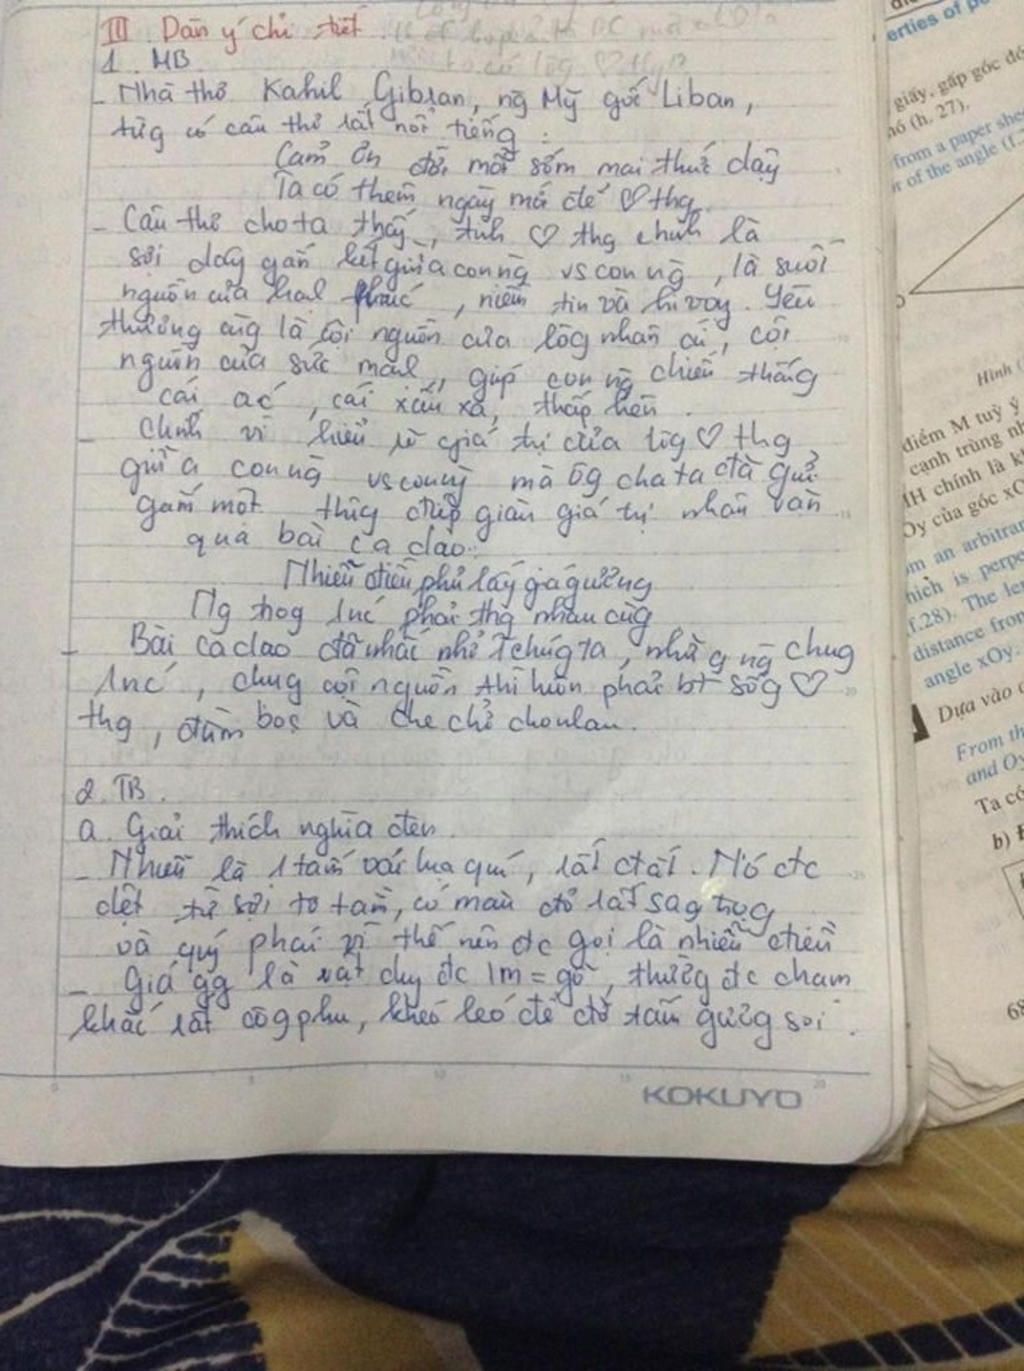 III. Dàn ý chi tiết
1. MB
- Nhà thơ Kahil Gibran, ng Mỹ gốc Liban,
từg có câu thơ rất nổi tiếng :
Cảm ơn đời mỗi sớm mai thức dậy
Ta có thêm ngày mới để ♡ thg.
- Câu thơ cho ta thấy, tình ♡ thg chính là
sợi dây gắn kết giữa con ng vs con ng, là suối
nguồn của hạh phúc, niềm tin và hi vọg. Yêu
thương cũg là cội nguồn của lòg nhân ái, cội
nguồn của sức mạh, giúp con ng chiến thắng
cái ác, cái xấu xa, thấp hèn.
- Chính vì hiểu rõ giá trị của lòg ♡ thg
giữa con ng vs con ng mà ôg cha ta đã gửi
gắm một thôg điệp giàu giá trị nhân văn
qua bài ca dao:
Nhiễu điều phủ lấy giá gương
Ng trog 1 nc phải thg nhau cùg
- Bài ca dao đã nhắc nhở chúg ta, nhữg ng chug
1 nc, chug cội nguồn thì luôn phải bt sốg ♡
thg, đùm bọc và che chở cho nhau.
2. TB.
a. Giải thích nghĩa đen.
- Nhiễu là 1 tấm vải lụa quý, rất đắt. Nó đc
dệt từ sợi tơ tằm, có màu đỏ rất sag trọg
và quý phái vì thế nên đc gọi là nhiễu điều
- Giá gg là vật dụg đc lm = gỗ, thườg đc chạm
khắc rất côg phu, khéo léo để đỡ tấm gươg soi.
KOKUYO
erties of
giấy, gấp góc
(h. 27).
from a paper
of the angle
Hình
điểm M tuỳ ý
cạnh trùng
MH chính là
Oy của góc
an arbitrar
hich is perpe
f.28). The
distance from
angle xOy.
Dựa vào
From
and Oy
Ta có
b)